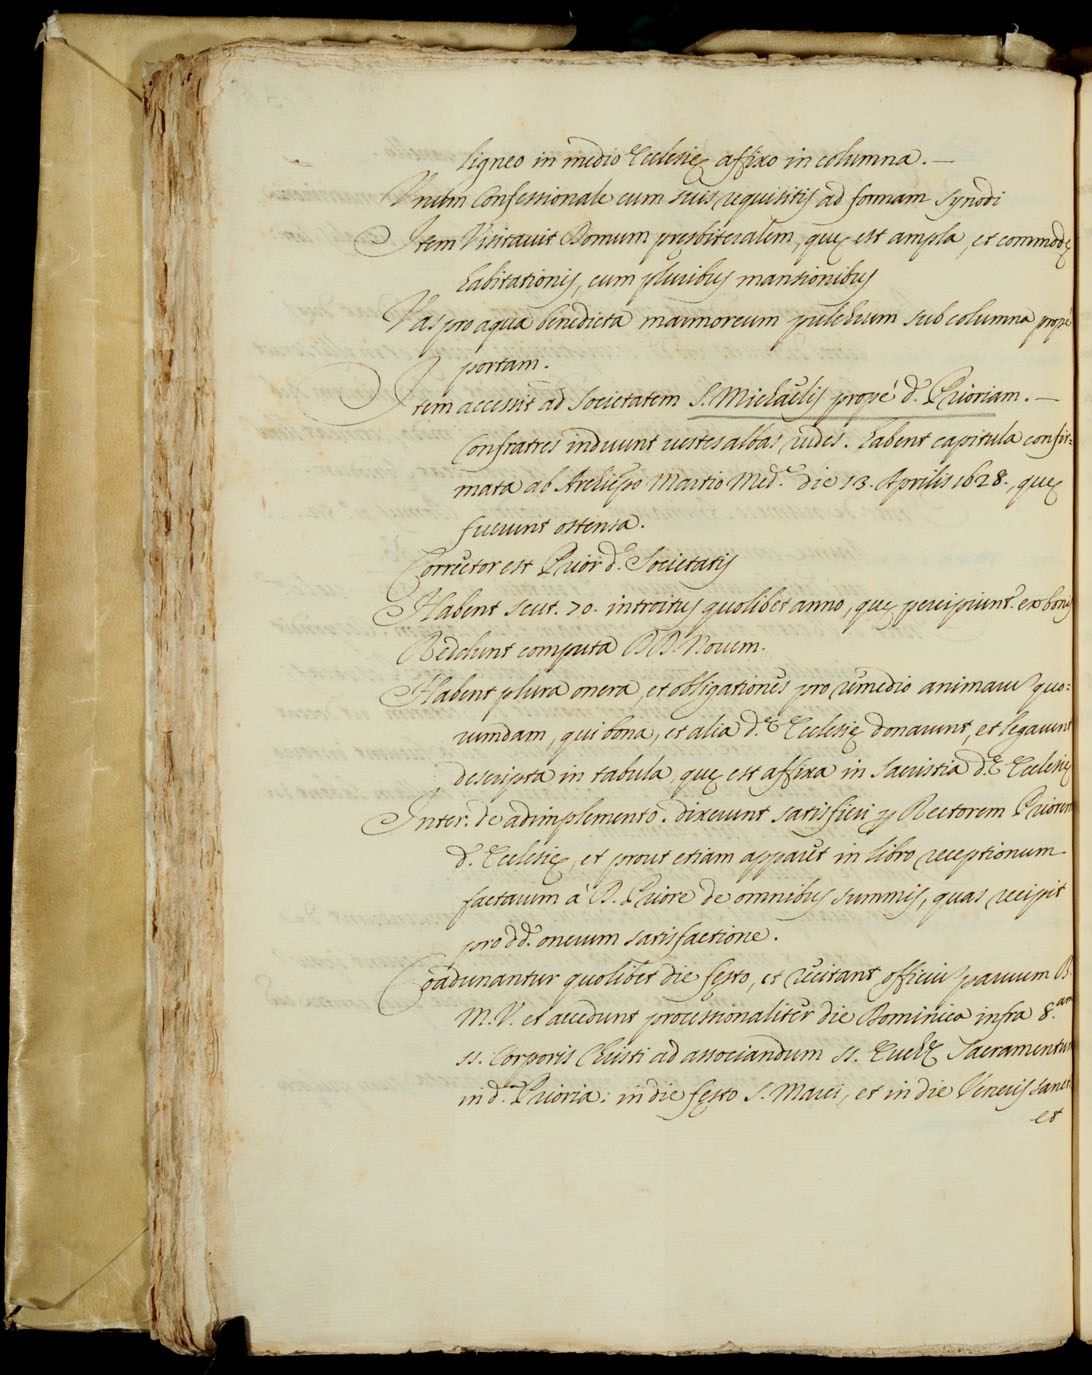 ligneo in medio Ecclesię affixo in columna. —
Vnum Confessionale cum suis requisitis ad formam synodi
Item Visitauit Domum presbiteralem, quę est ampla, et commodę
habitationis, cum pluribus mansionibus
Vas pro aqua benedicta marmoreum pulchrum sub columna propè
portam.
Item accessit ad societatem S. Michaelis propè d. Prioriam. —
Confratres induunt uestes albas rudes. habent capitula confir=
mata ab Archiepo Martio Med.e die 13. Aprilis 1628., quę
fuerunt ostensa.
Corrector est Prior d. Societatis
Habent scut. 70. introitus quolibet anno, quę percipiunt.r ex bonis
Reddunt computa DD. Nouem.
Habent plura onera, et obligationes pro remedio animaru quo=
rumdam, qui bona, et alia d.ę Ecclesię donarunt, et legarunt
descripta in tabula, quę est affixa in Sacristia d.ę Ecclesię
Inter. de adimplemento. dixerunt satisfieri p Rectorem Priorem
d. Ecclesię, et prout etiam apparet in libro receptionum
factarum à D. Priore de omnibus summis, quas recipit
pro dd. onerum satisfactione.
Coadunantur quolibet die festo, et recitant officiu paruum B.
M. V. et accedunt processionaliter die Dominica infra 8.am
SS. Corporis Christi ad associandum SS. Euchę Sacramentum
in d. Prioria: in die festo S. Marci, et in die Veneris Sancti
et